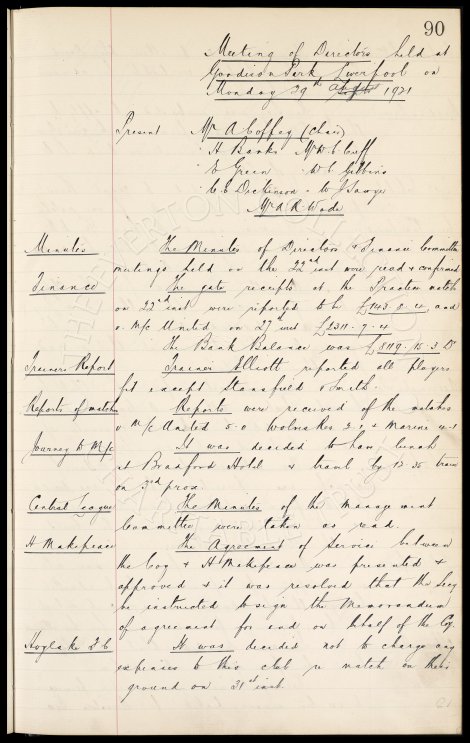 90
Meeting of Directors held at
Goodison Park Liverpool on
Monday 29th 1921
Present Mr A Coffey (Chair)
" H Banks Mr W C Cuff
" E Green " W C Gibbins
" C E Dickinson " W J Sawyer
Mr A. R. Wade
Minutes The Minutes of Directors & Finance Committee
meetings held on the 22nd inst were read & confirmed
Finance The gate receipts at the Practice match
on 22nd inst were reported to be £143-0-4 and
v. M/c United on 27th inst £2311-9-4
The Bank Balance was £8119.15.3 Dr
Trainers Report Trainer Elliott reported all players
fit except Stansfield & Smith.
Reports of matches Reports were received of the matches
v M/c United 5-0 Wolves Res 2-1 & Marine 4-1
Journey to M/c It was decided to have lunch
at Bradford Hotel & travel by 12-35 train
on 3rd prox.
Central League The Minutes of the management
Committee were taken as read.
H Makepeace The Agreement of Service between
the Coy & H Makepeace was presented &
approved & it was resolved that the Secy
be instructed to sign the Memorandum
of agreement for and on behalf of the Coy.
Hoylake It was decided not to charge any
expenses to this club re match on their
ground on 31st inst.